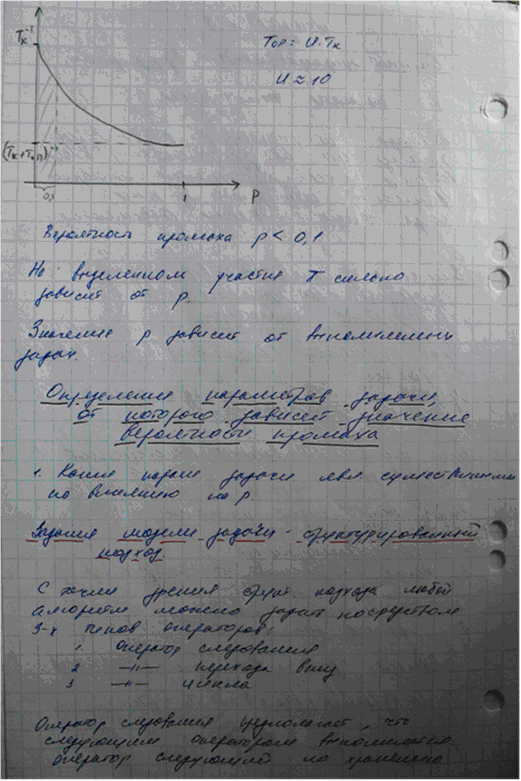 T_к⁻¹
T_ор = И·T_к
И ≈ 10
(T_к+T_оп)⁻¹
0,1
1
P
Вероятность промаха p < 0,1
На выделенном участке T сильно
зависит от p.
Значение p зависит от выполняемых
задач.
Определение параметров задачи,
от которого зависят значение
вероятности промаха
1. Какие парам задачи явл существенными
по влиянию на p.
Задание модели задачи - структурированный
подход.
С точки зрения струк. подхода любой
алгоритм можно задать посредством
3-х типов операторов:
1 оператор следования
2 —//— перехода вниз
3 —//— цикла
Оператор следования предполагает, что
следующим оператором выполняется
оператор следующий по хранению